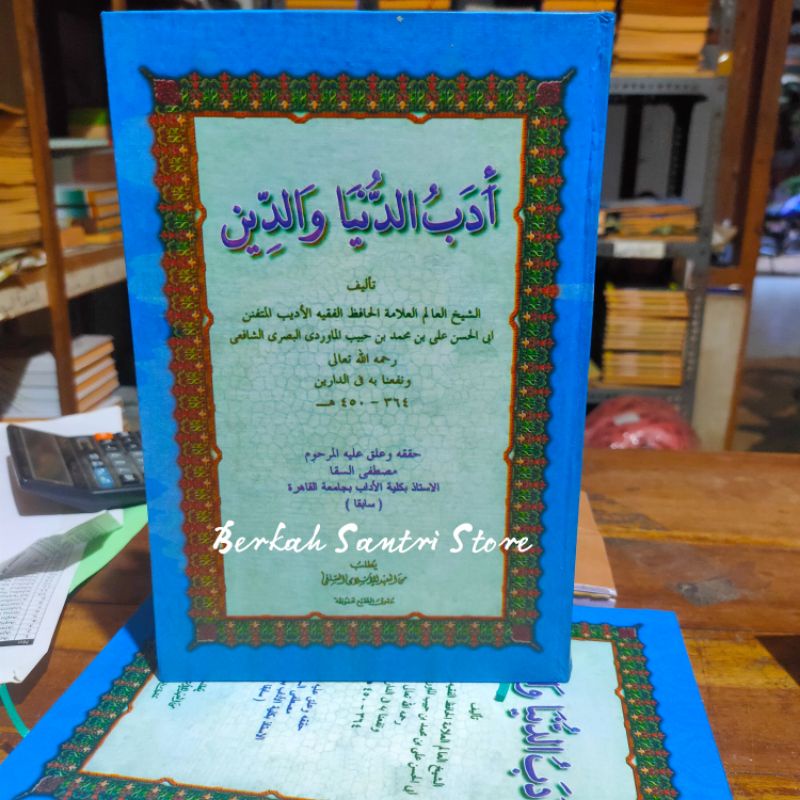 أَدَبُ الدُّنْيَا وَالدِّين
تأليف
الشيخ العالم العلامة الحافظ الفقيه الأديب المتفنن
ابى الحسن على بن محمد بن حبيب الماوردى البصرى الشافعى
رحمه الله تعالى
ونفعنا به فى الدارين
٣٦٤ - ٤٥٠ هـ
حققه وعلق عليه المرحوم
مصطفى السقا
الاستاذ بكلية الأداب بجامعة القاهرة
( سابقا )
Berkah Santri Store
يطلب
حقوق الطبع محفوظة